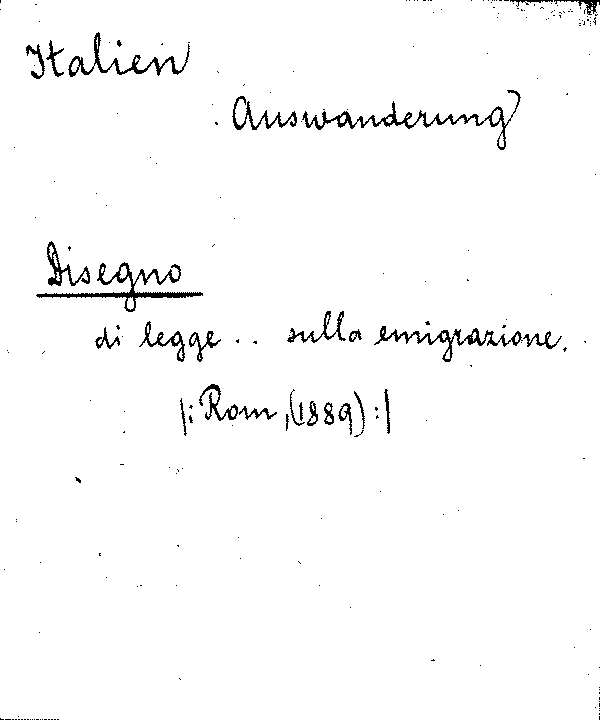 Italien
Auswanderung
Disegno
di legge .. sulla emigrazione.
|: Rom, (1889) :|